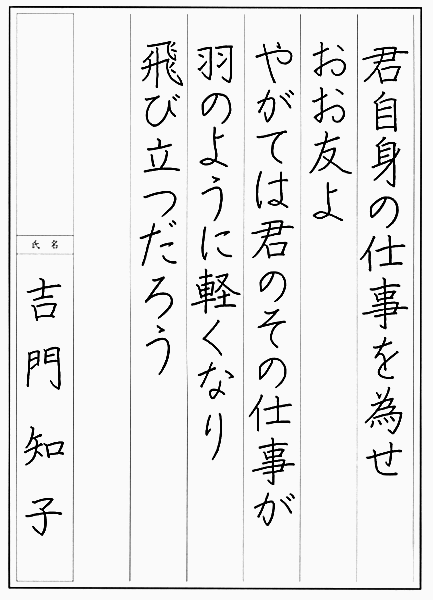 君自身の仕事を為せ
おお友よ
やがては君のその仕事が
羽のように軽くなり
飛び立つだろう
氏名
吉門知子